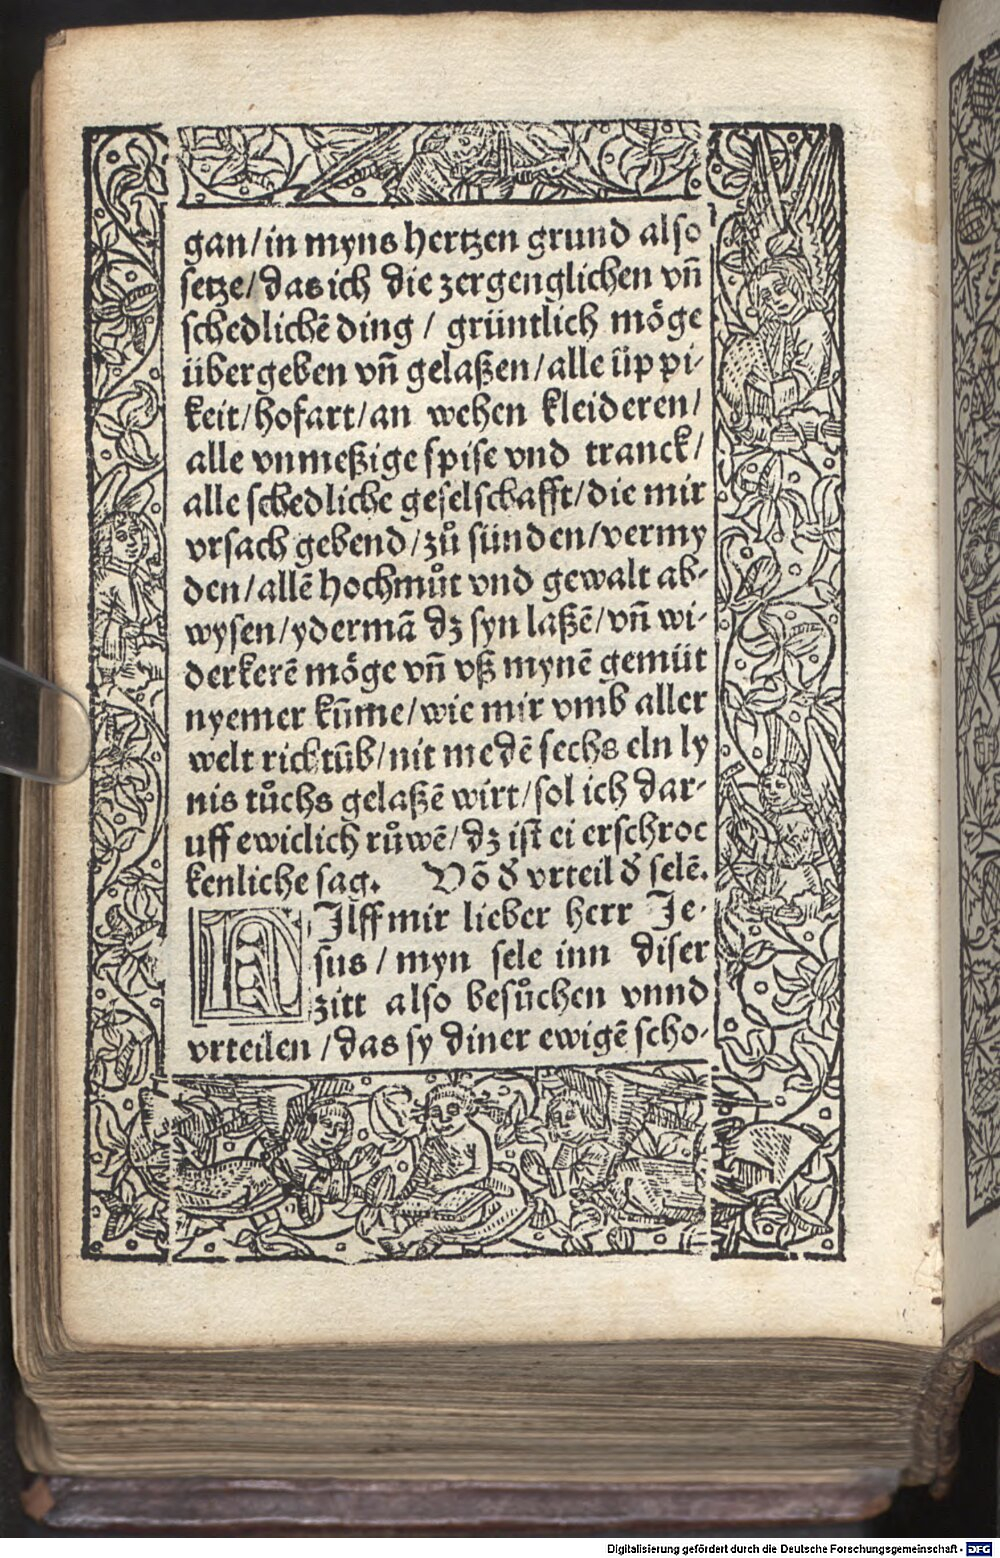 gan/in myns hertzen grund also
setze/das ich die zergenglichen vn̄
schedlichē ding / grüntlich möge
übergeben vn̄ gelaßen/alle üppi-
keit/hofart/an wehen kleideren/
alle vnmeßige spise vnd tranck/
alle schedliche geselschafft/die mir
vrsach gebend/zů sünden/vermy
den/allē hochmůt vnd gewalt ab-
wysen/ydermā dz syn laßē/vn̄ wi-
derkerē möge vn̄ vß mynē gemüt
nyemer kūme/wie mir vmb aller
welt richtūb/nit me dē sechs eln ly
nis tůchs gelaßē wirt/sol ich dar-
uff ewiclich růwē/dz ist ei erschroc
kenliche sag. Vō đ vrteil đ selē.
HIlff mir lieber herr Je-
sus / myn sele inn diser
zitt also besůchen vnnd
vrteilen /das sy diner ewigē scho-
Digitalisierung gefördert durch die Deutsche Forschungsgemeinschaft - DFG